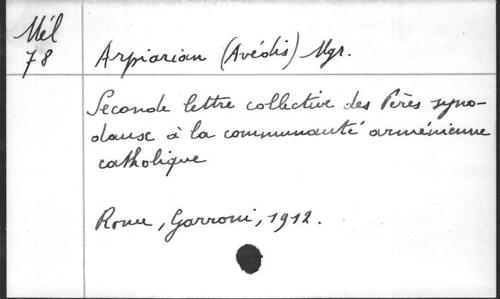 Mél
78
Arpiarian (Avédis) Mgr.
Seconde lettre collective des Pères syno-
daux à la communauté arménienne
catholique
Rome, Garroni, 1912.